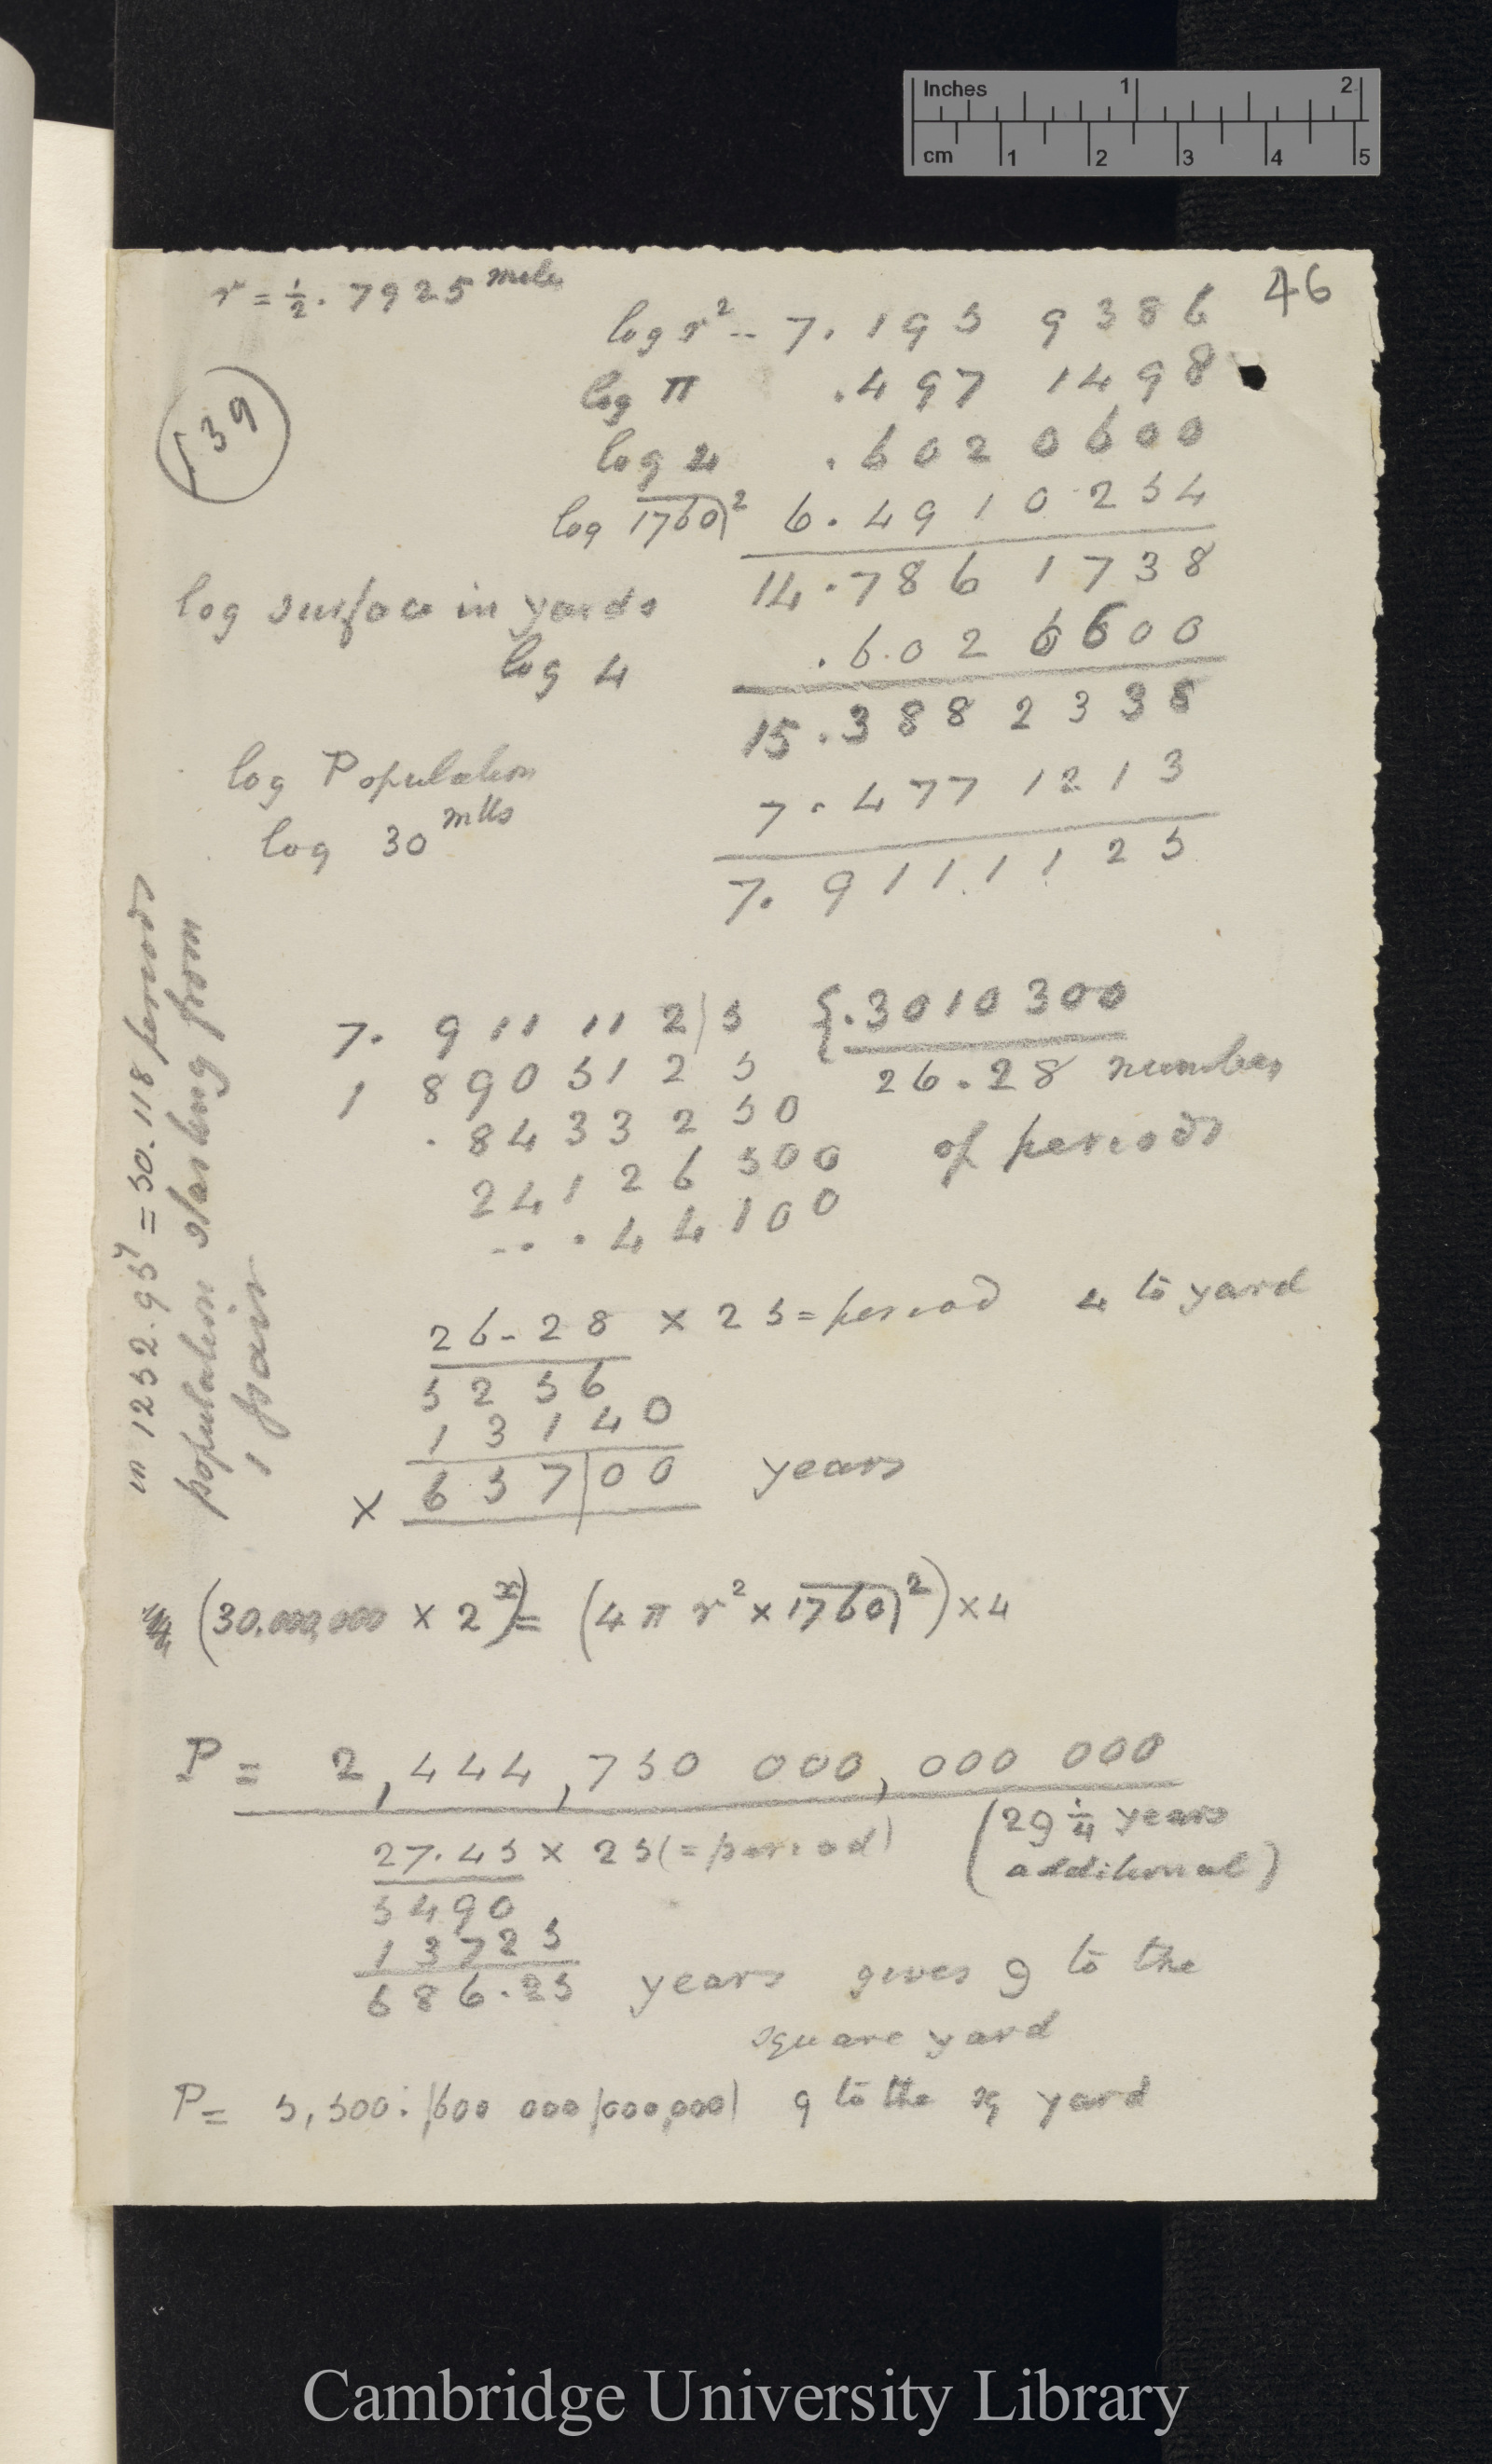 Inches 1 2
cm 1 2 3 4 5
46
r = ½ . 7925 miles
log r² -- 7. 195 9386
139
log π .497 1498
log 4 .602 0600
log 1760)² 6.491 0254
log surface in yards 14.786 1738
log 4 .602 6600
log Population 15.388 2338
log 30 mlls 7.477 1213
7. 911 1125
7. 911 112)5 {.3010300
1 8905125 26.28 number
. 8433250 of periods
24126500
-- . 44100
26-28 × 25 = period 4 to yard
5256
13140
× 657|00 years
(30.000,000 × 2ˣ) = (4 π r² × 1760)²) × 4
P = 2,444,750 000,000 000
27.45 × 25 (= period) (29 ¼ years
additional)
5490
13725
686.25 years gives 9 to the
square yard
P = 5,500:|600 000|000,000| 9 to the sq yard
in 1252.95 y = 50.118 periods
population starting from
1 pair
Cambridge University Library